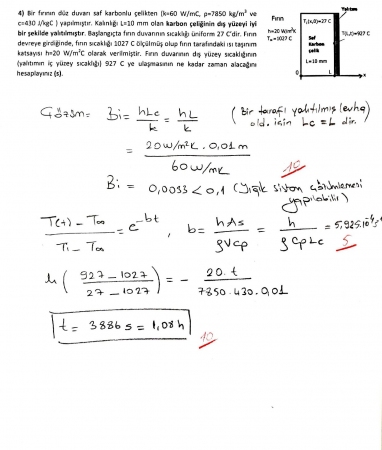 4) Bir fırının düz duvarı saf karbonlu çelikten (k=60 W/mC, p=7850 kg/m³ ve
c=430 J/kgC ) yapılmıştır. Kalınlığı L=10 mm olan karbon çeliğinin dış yüzeyi iyi
bir şekilde yalıtılmıştır. Başlangıçta fırın duvarının sıcaklığı üniform 27 C'dir. Fırın
devreye girdiğinde, fırın sıcaklığı 1027 C ölçülmüş olup fırın tarafındaki ısı taşınım
katsayısı h=20 W/m²C olarak verilmiştir. Fırın duvarının dış yüzey sıcaklığının
(yalıtımın iç yüzey sıcaklığı) 927 C ye ulaşmasının ne kadar zaman alacağını
hesaplayınız (s).
Yalıtım
Fırın
T(x,0)=27 C
h=20 W/m²K
T∞=1027 C
T(L,t)=927 C
Saf
Karbon
çelik
L=10 mm
0 L x
Çözüm= Bi = hLc / k = hL / k (Bir tarafı yalıtılmış levha
old. için Lc = L dir.
= 20 W/m²K . 0,01m / 60 W/mK
10
Bi = 0,0033 < 0,1 (Yığık sistem çözümlemesi
yapılabilir)
T(t) - T∞ / Ti - T∞ = e^-bt , b = hAs / ρVcp = h / ρCpLc = 5,925.10⁻⁴ s⁻¹
5
ln ( 927 - 1027 / 27 - 1027 ) = - 20. t / 7850 . 430. 0,01
t = 3886 s = 1,08 h
10